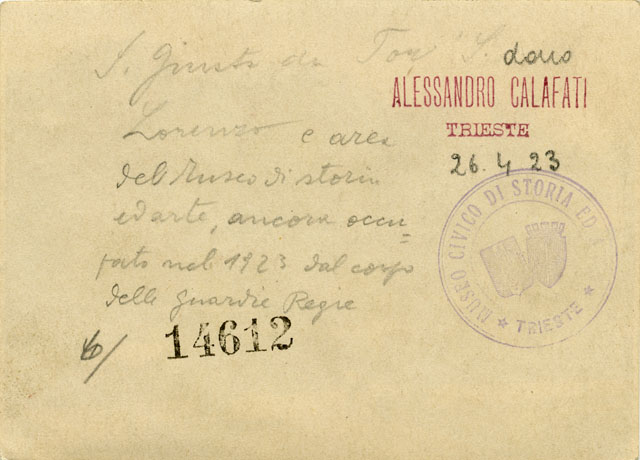 S. Giusto da Tor S.
Lorenzo e area
del Museo di storia
ed arte, ancora occu-
pato nel 1923 dal corpo
delle guardie Regie
dono
ALESSANDRO CALAFATI
TRIESTE
26.4 23
MUSEO CIVICO DI STORIA ED A
★ TRIESTE ★
14612